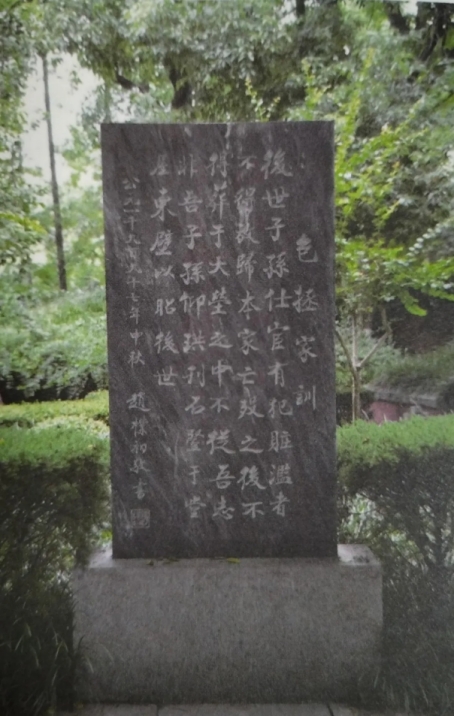 包拯家訓
後世子孫仕宦有犯贓濫者
不得放歸本家亡歿之後不
得葬于大塋之中不從吾志
非吾子孫仰珙刊石竪于堂
屋東壁以昭後世
公元一千九百八十七年中秋 趙樸初敬書